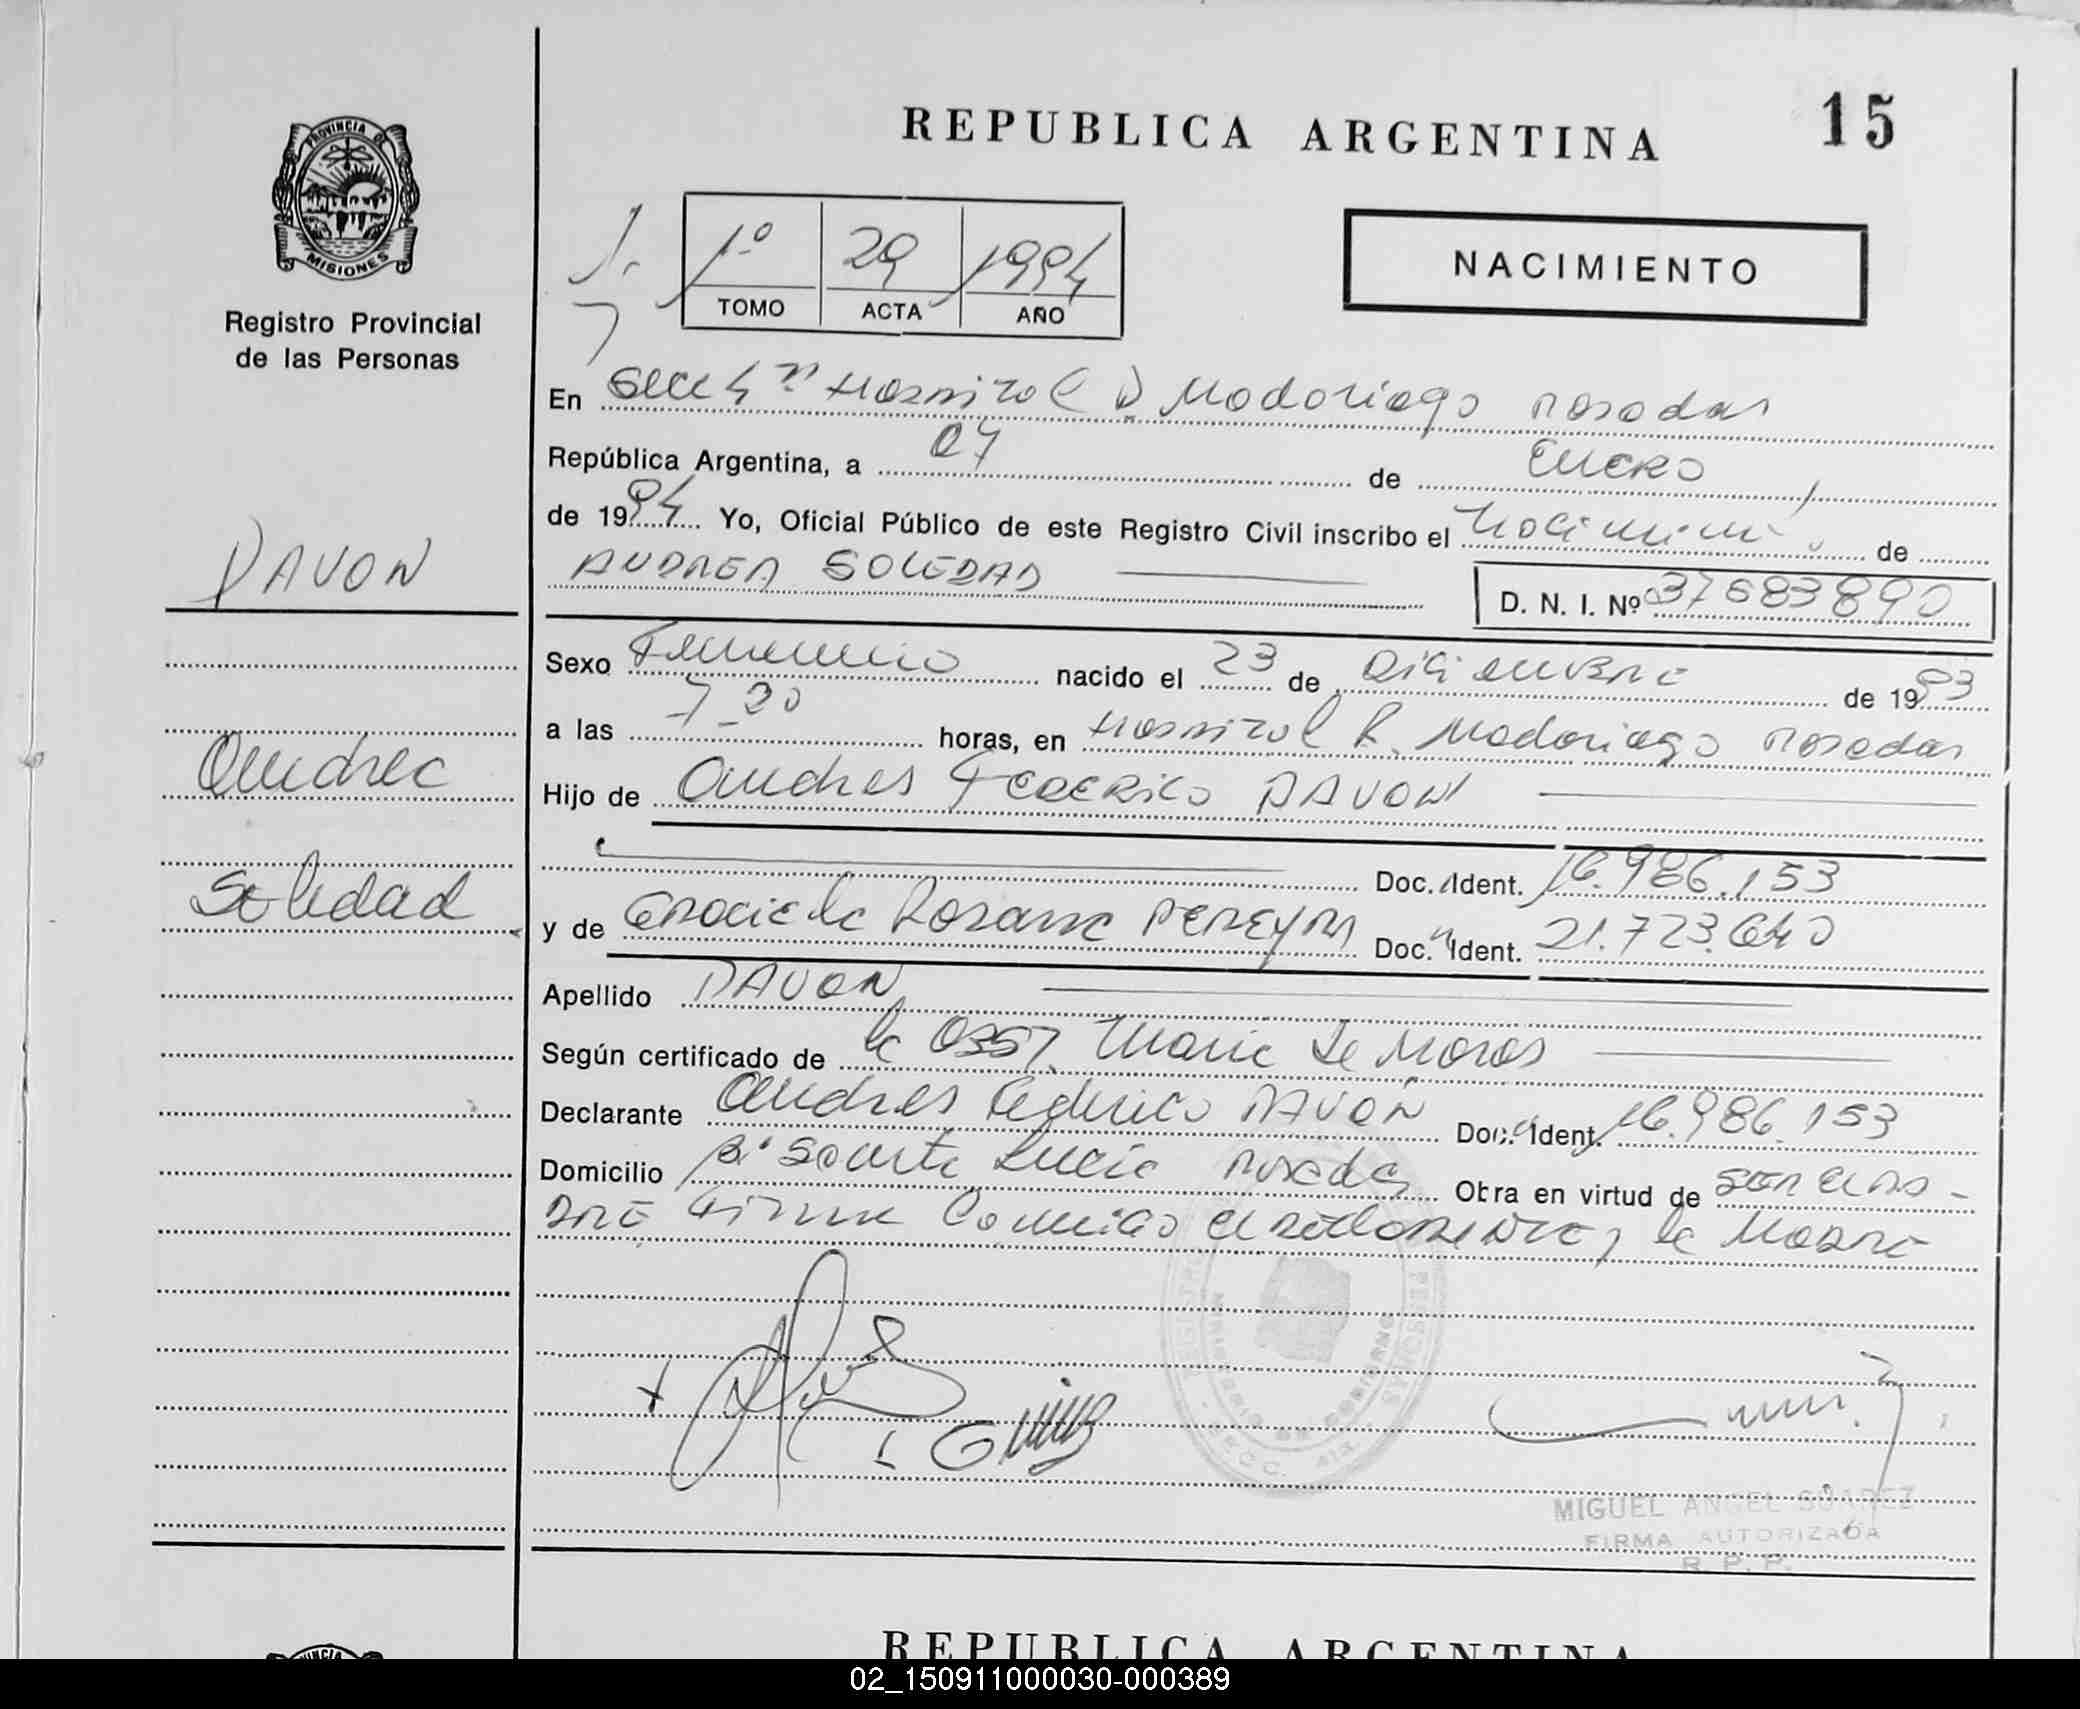 REPUBLICA ARGENTINA 15
PROVINCIA DE
MISIONES
Registro Provincial
de las Personas
1º 29 1994
TOMO ACTA AÑO
NACIMIENTO
En Secc 4ª Hospital R Madariaga Posadas
República Argentina, a 07 de Enero
de 1994 Yo, Oficial Público de este Registro Civil inscribo el de
ANDREA SOLEDAD
D. N. I. Nº 37683890
PAVON
Andrea
Soledad
Sexo Femenino nacido el 23 de Diciembre de 1993
a las 7-20 horas, en Hospital R. Madariaga Posadas
Hijo de Andres FEDERICO PAVON
Doc. Ident. 16.986.153
y de Graciela Rosana PEREYRA Doc. Ident. 21.723.640
Apellido PAVON
Según certificado de la Obst. Maria de
Declarante Andres Federico PAVON Doc. Ident. 16.986.153
Domicilio Bº Santa Lucia Posadas Obra en virtud de SER EL PA-
DRE Firma Conmigo el declarante y la MADRE
MIGUEL ANGEL SUAREZ
FIRMA AUTORIZADA
R. P. P.
REPUBLICA ARGENTINA
02_150911000030-000389